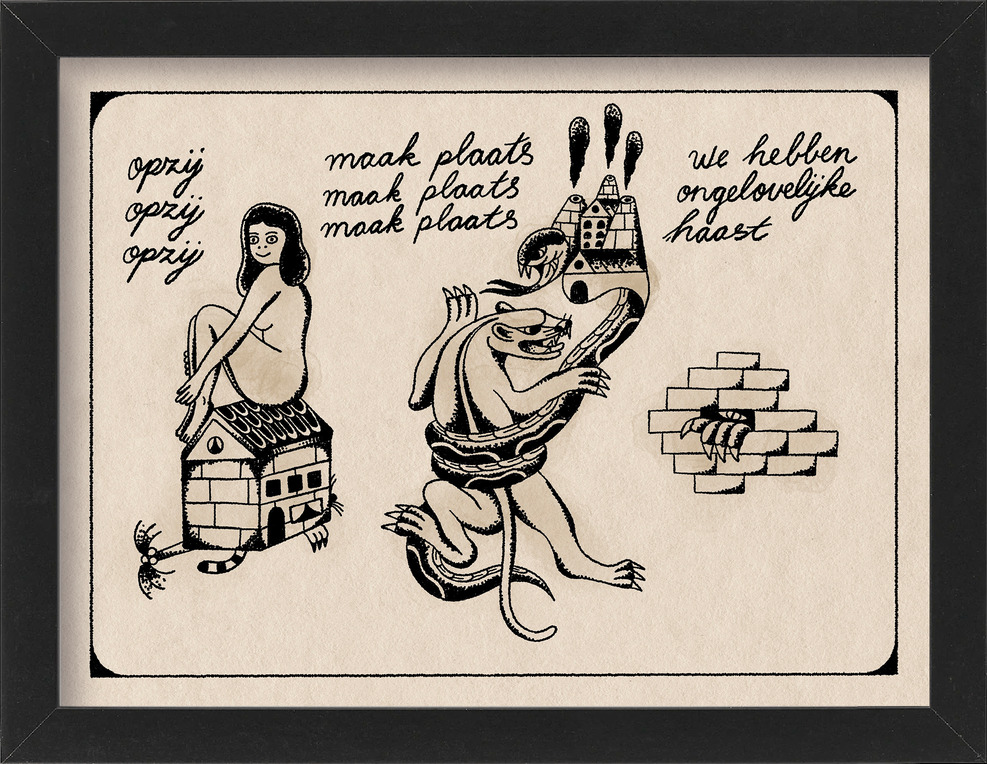 opzij
opzij
opzij
maak plaats
maak plaats
maak plaats
we hebben
ongelovelijke
haast